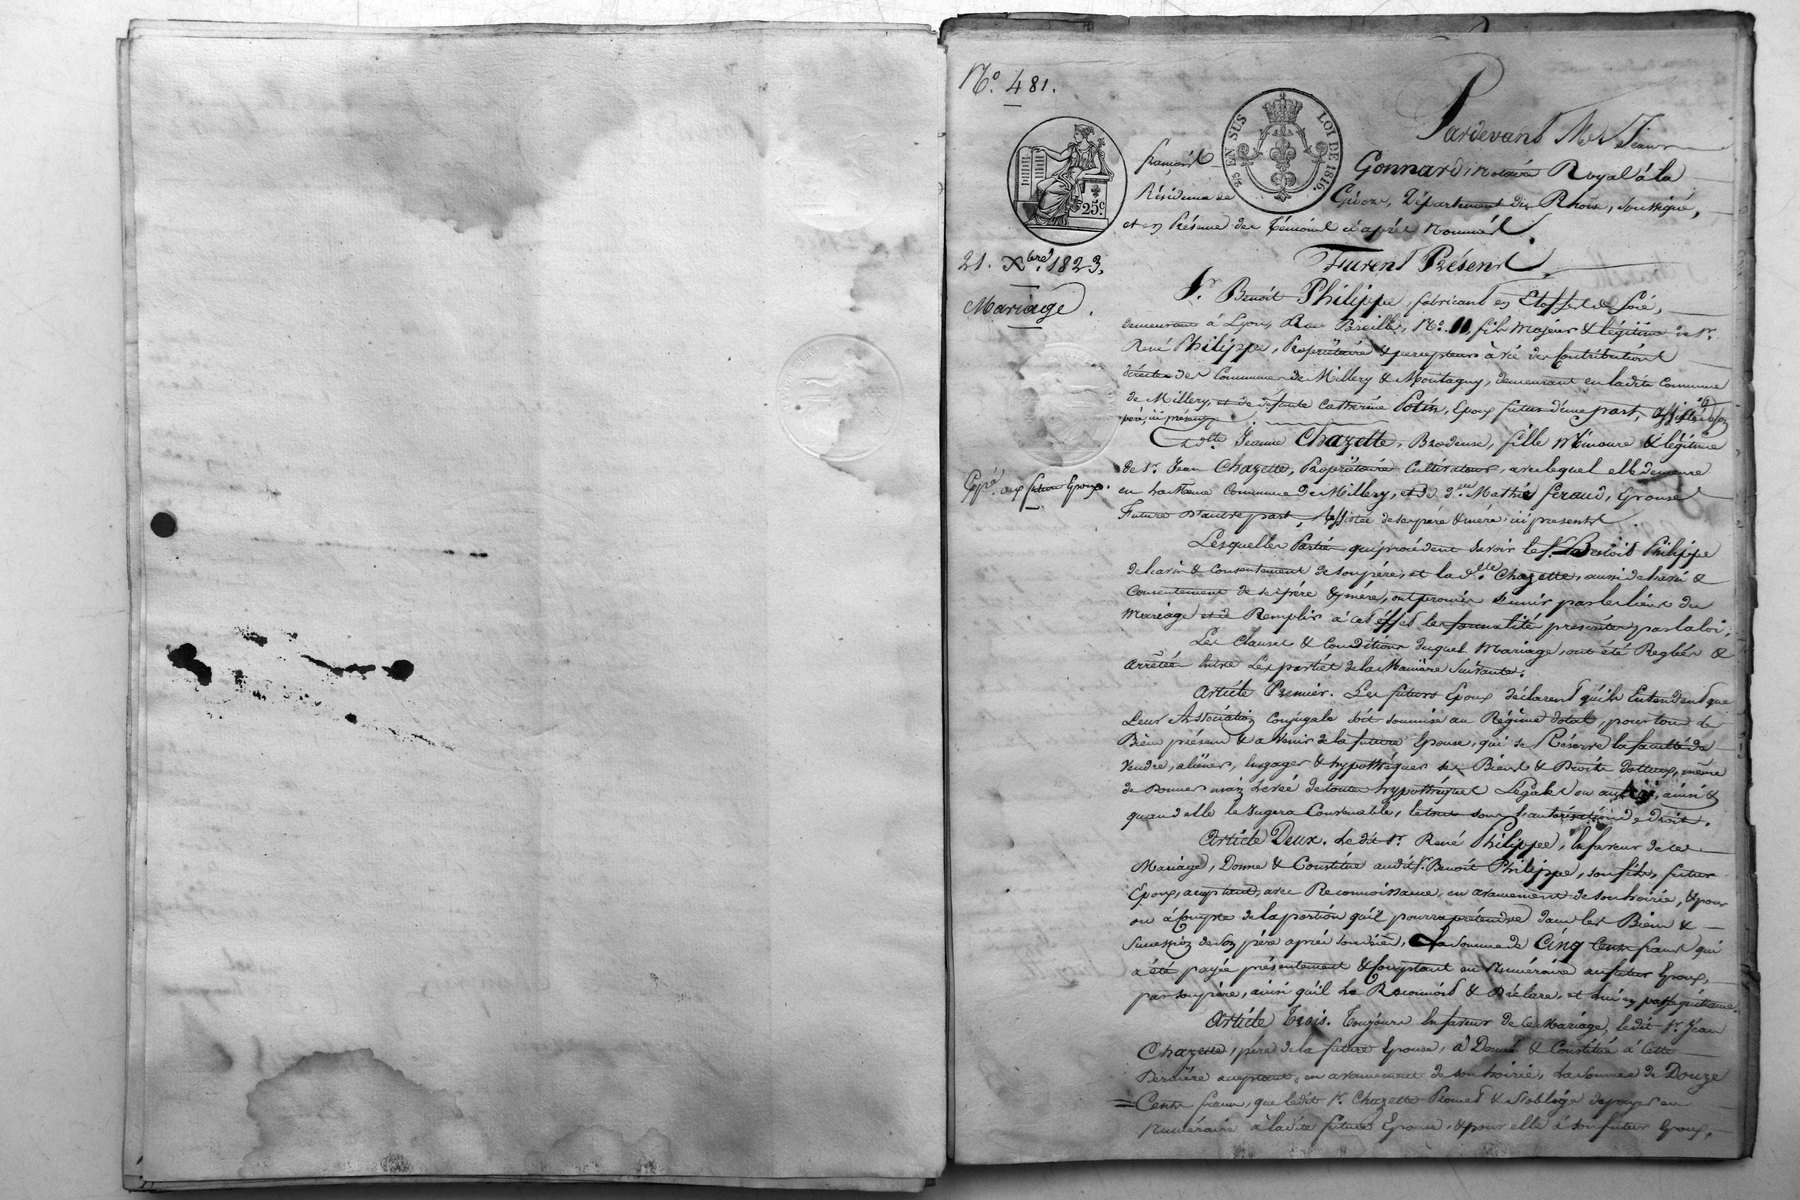 N.o 481.
Pardevant Me Jean
françois Gonnard, notaire Royal à la
Résidence de Givors, Département du Rhône, soussigné,
et en Présence des Témoins ci après nommés.
2/5 EN SUS LOI DE 1816.
25c
21. Xbre 1823.
Mariage.
Furent Présents
Sr. Benoit Philippe, fabricant en Etoffes de soie,
demeurant à Lyon, Rue Bareille, No. 11, fils Majeur & légitime de Sr.
René Philippe, Propriétaire & percepteur à vie des Contributions
directes des Communes de Millery & Montagny, demeurant en ladite Commune
de Millery, et de défunte Catherine Potin, Epoux futur d'une part, assisté de son
père, ici présent.
Et Dlle Jeanne Chazette, Brodeuse, fille Mineure & légitime
de Sr. Jean Chazette, Propriétaire Cultivateur, avec lequel elle demeure
en la Même Commune de Millery, et de De. Mathie feraud, Epouse
Future d'autre part, Assistée de ses père & mère, ici présents.
Expé. aux futurs Epoux.
Lesquelles Parties qui procèdent savoir le Sr. Benoit Philippe
de l'avis & Consentement de son père, et la Dlle. Chazette, aussi de l'avis &
Consentement de ses père & mère, ont promis s'unir par les liens du
Mariage et de Remplir à cet effet les formalités prescrites par la loi;
Les Clauses & Conditions duquel Mariage, ont été Reglées &
arrêtées Entre les parties de la Manière Suivante:
Article Premier. Les futurs Epoux déclarent qu'ils Entendent que
Leur Association Conjugale soit soumise au Régime dotal, pour tous les
Biens présens & a venir de la future Epouse, qui se Réserve la faculté de
Vendre, aliéner, Engager & hypothéquer ses Biens & Droits dotaux, même
de Donner main levée de toutes hypothèques Légales ou autres, ainsi &
quand elle le Jugera Convenable, le tout sous l'autorisation de Droit.
Article Deux. Ledit Sr. René Philippe, En faveur de ce
Mariage, Donne & Constitue audit Sr. Benoit Philippe, son fils, futur
Epoux, acceptant, avec Reconnoissance, en avancement de son hoirie, & pour
ou à Compte de la portion qu'il pourra prétendre dans les Biens &
Succession de son père après son décès, La somme de Cinq Cents francs qui
a été payée présentement & Comptant en Numéraire au futur Epoux,
par son père, ainsi qu'il Le Reconnoit & Déclare, et lui en passe quittance.
Article Trois. Toujours En faveur de ce Mariage, ledit Sr. Jean
Chazette, père de la future Epouse, a Donné & Constitué à Cette
Dernière acceptant, en avancement de son hoirie, la somme de Douze
Cents francs, que ledit Sr. Chazette Promet & S'oblige de payer en
Numéraire à la dite future Epouse, & pour elle à son futur Epoux,